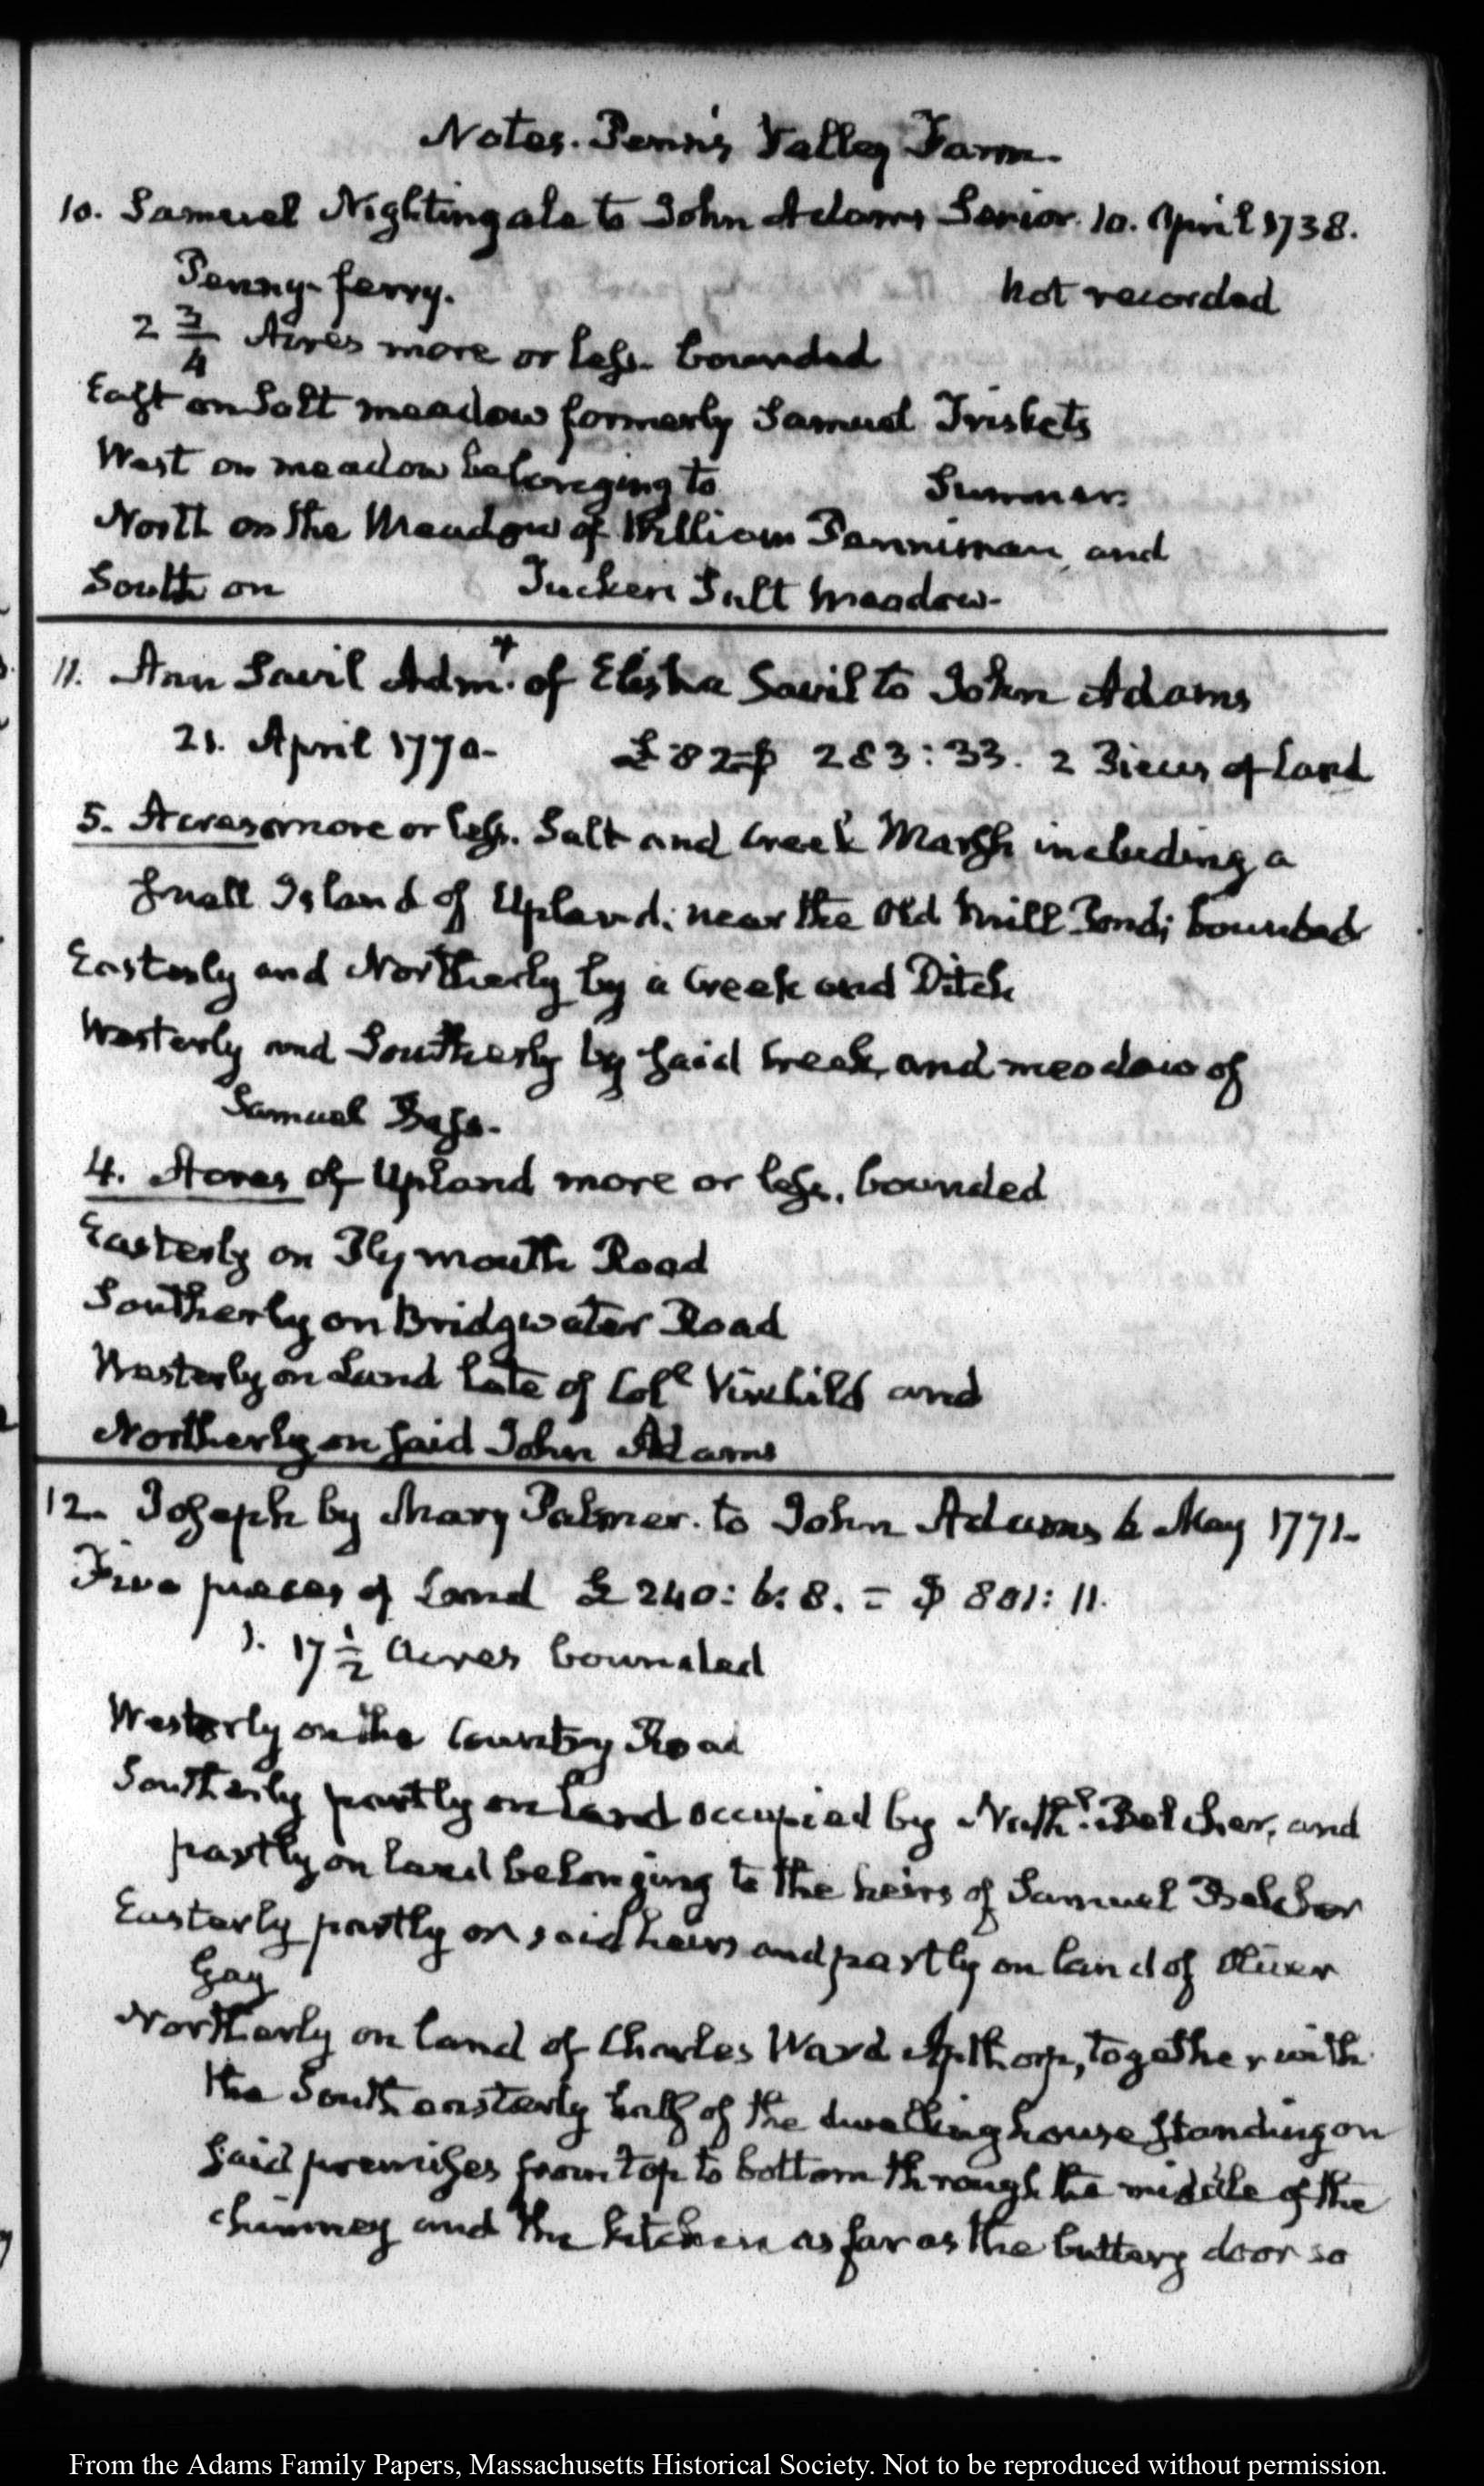 Notes. Penn's Valley Farm.
10. Samuel Nightingale to John Adams Senior. 10. April 1738.
Penny-ferry. not recorded
2 3/4 Acres more or less. bounded
East on Salt meadow formerly Samuel Triskets
West on meadow belonging to Sumner.
North on the Meadow of William Penniman, and
South on Tuckers Salt meadow-
11. Ann Savil Admx. of Elisha Savil to John Adams
21. April 1770- £ 82 = $ 283:33. 2 Pieces of Land
5. Acres more or less. Salt and Creek Marsh including a
small Island of Upland: near the Old Mill Pond; bounded
Easterly and Northerly by a Creek and Ditch
Westerly and Southerly by said Creek, and meadow of
Samuel Bass-
4. Acres of Upland more or less. bounded
Easterly on Plymouth Road
Southerly on Bridgwater Road
Westerly on Land late of Coll Vinchild and
Northerly on said John Adams
12. Joseph by Mary Palmer. to John Adams 6 May 1771-
Five pieces of Land £ 240: 6: 8. = $ 801: 11.
1. 17 1/2 Acres bounded
Westerly on the Country Road
Southerly partly on land occupied by Nathl. Belcher, and
partly on land belonging to the heirs of Samuel Belcher
Easterly partly on said heirs and partly on land of Oliver
Gay
Northerly on land of Charles Ward Apthorp, together with
the South easterly half of the dwelling house standing on
said premises from top to bottom through the middle of the
chimney and the kitchen as far as the buttery door so
From the Adams Family Papers, Massachusetts Historical Society. Not to be reproduced without permission.